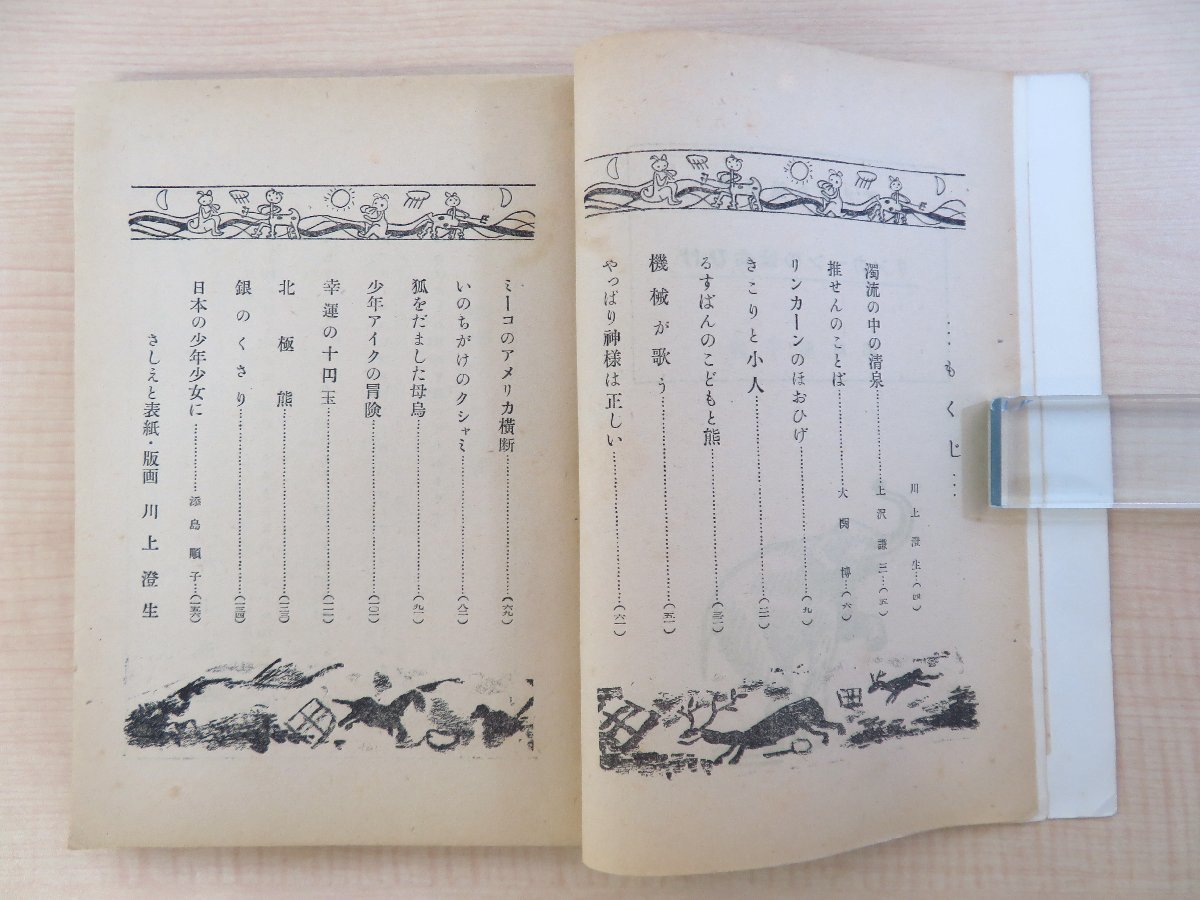 …もくじ…
川上澄生…(四)
濁流の中の清泉…………上沢謙二…(五)
推せんのことば…………大関 博…(六)
リンカーンのほおひげ…………(九)
きこりと小人…………(二一)
るすばんのこどもと熊…………(三一)
機械が歌う…………(五一)
やっぱり神様は正しい…………(六一)
ミーコのアメリカ横断…………(六九)
いのちがけのクシャミ…………(八一)
狐をだました母鳥…………(九一)
少年アイクの冒険…………(一〇一)
幸運の十円玉…………(一一一)
北極熊…………(一三〇)
銀のくさり…………(一三四)
日本の少年少女に…………添島順子…(一五六)
さしえと表紙・版画 川上澄生